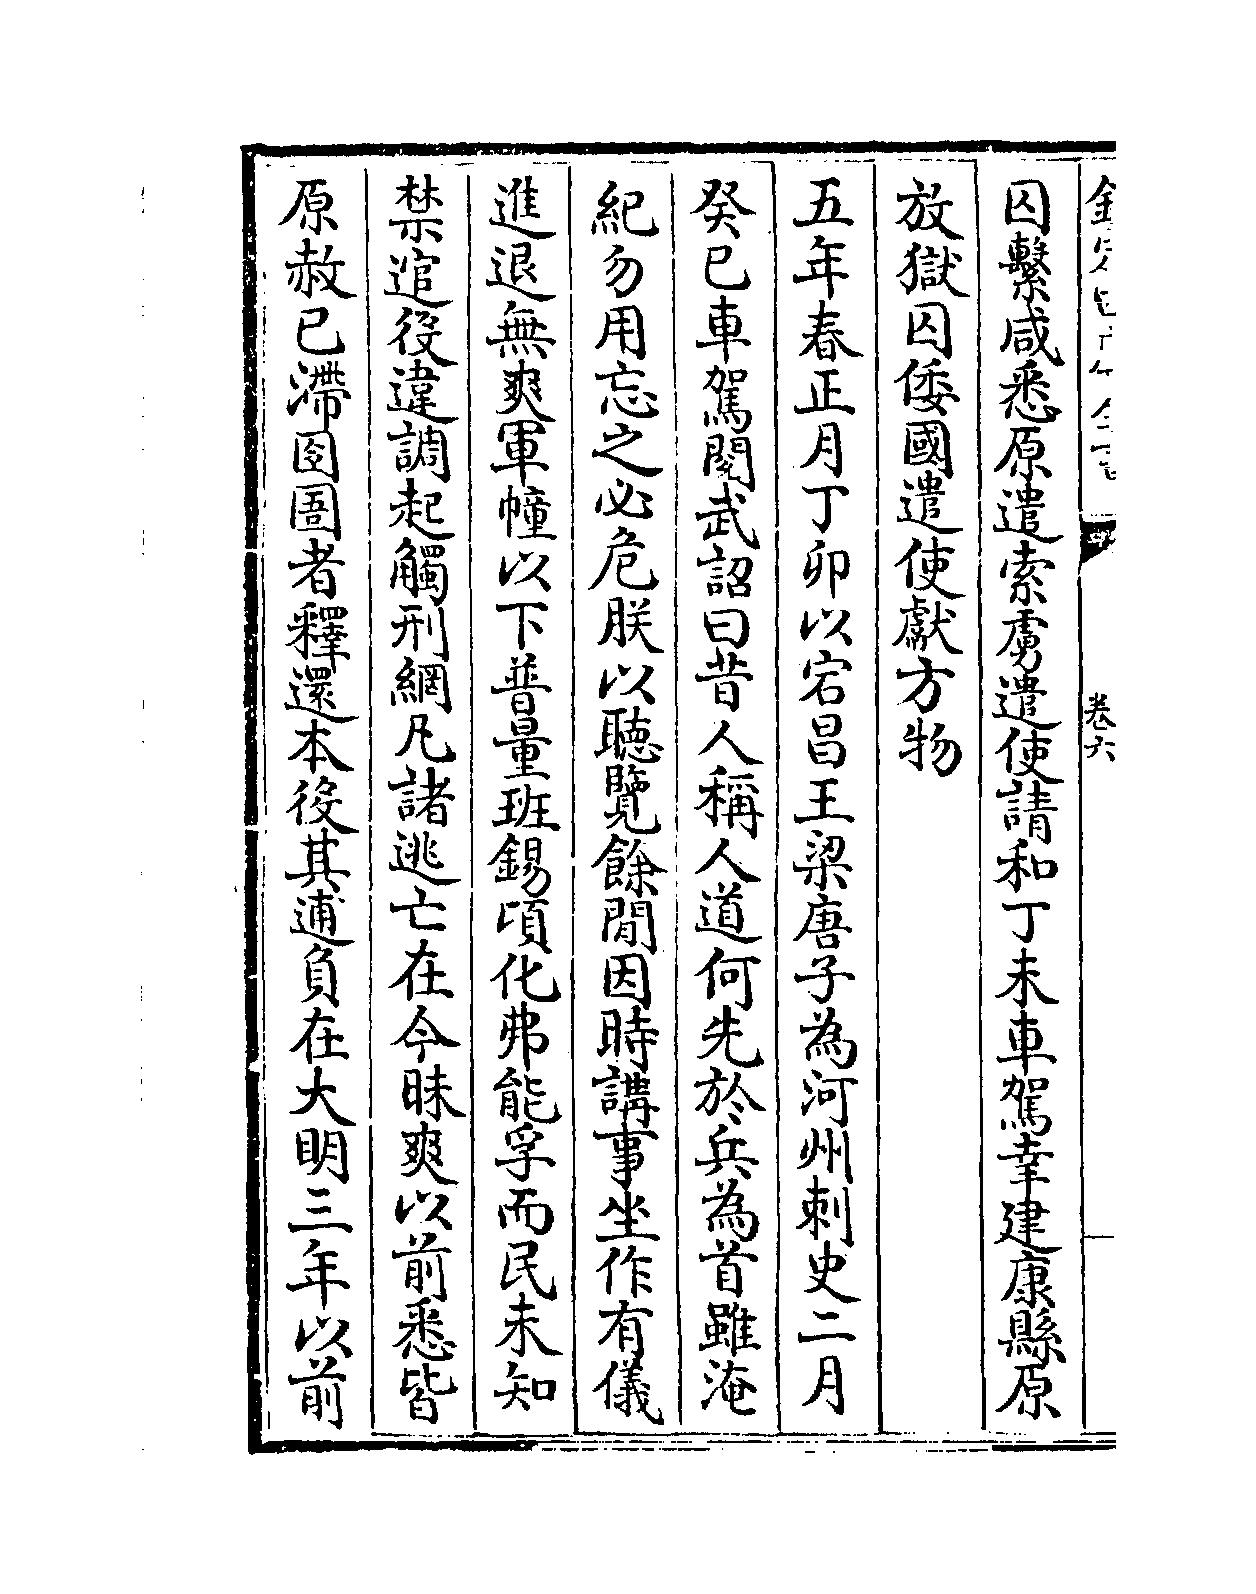 卷六
囚繫咸悉原遣索虜遣使請和丁未車駕幸建康縣原
放獄囚倭國遣使獻方物
五年春正月丁卯以宕昌王梁唐子為河州刺史二月
癸巳車駕閱武詔曰昔人稱人道何先於兵為首雖淹
紀勿用忘之必危朕以聽覽餘閒因時講事坐作有儀
進退無爽軍幢以下普量班錫頃化弗能孚而民未知
禁逭役違調起觸刑網凡諸逃亡在今昧爽以前悉皆
原赦已滯囹圄者釋還本役其逋負在大明三年以前